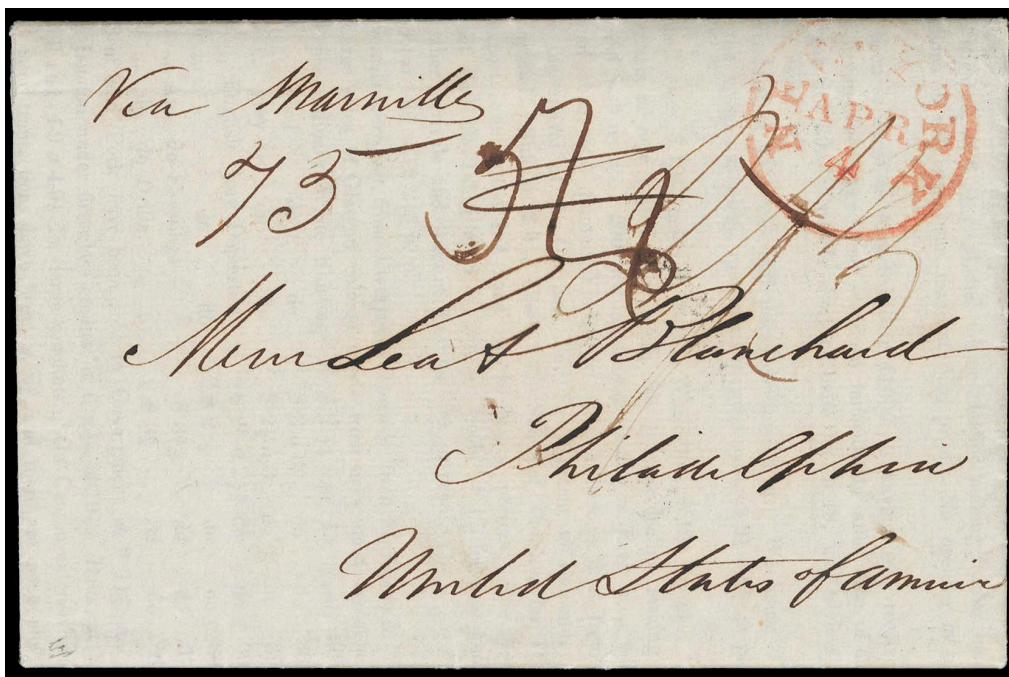 Via Marseilles
NEW YORK
APR
4
73
Messrs Lea & Blanchard
Philadelphia
United States of America